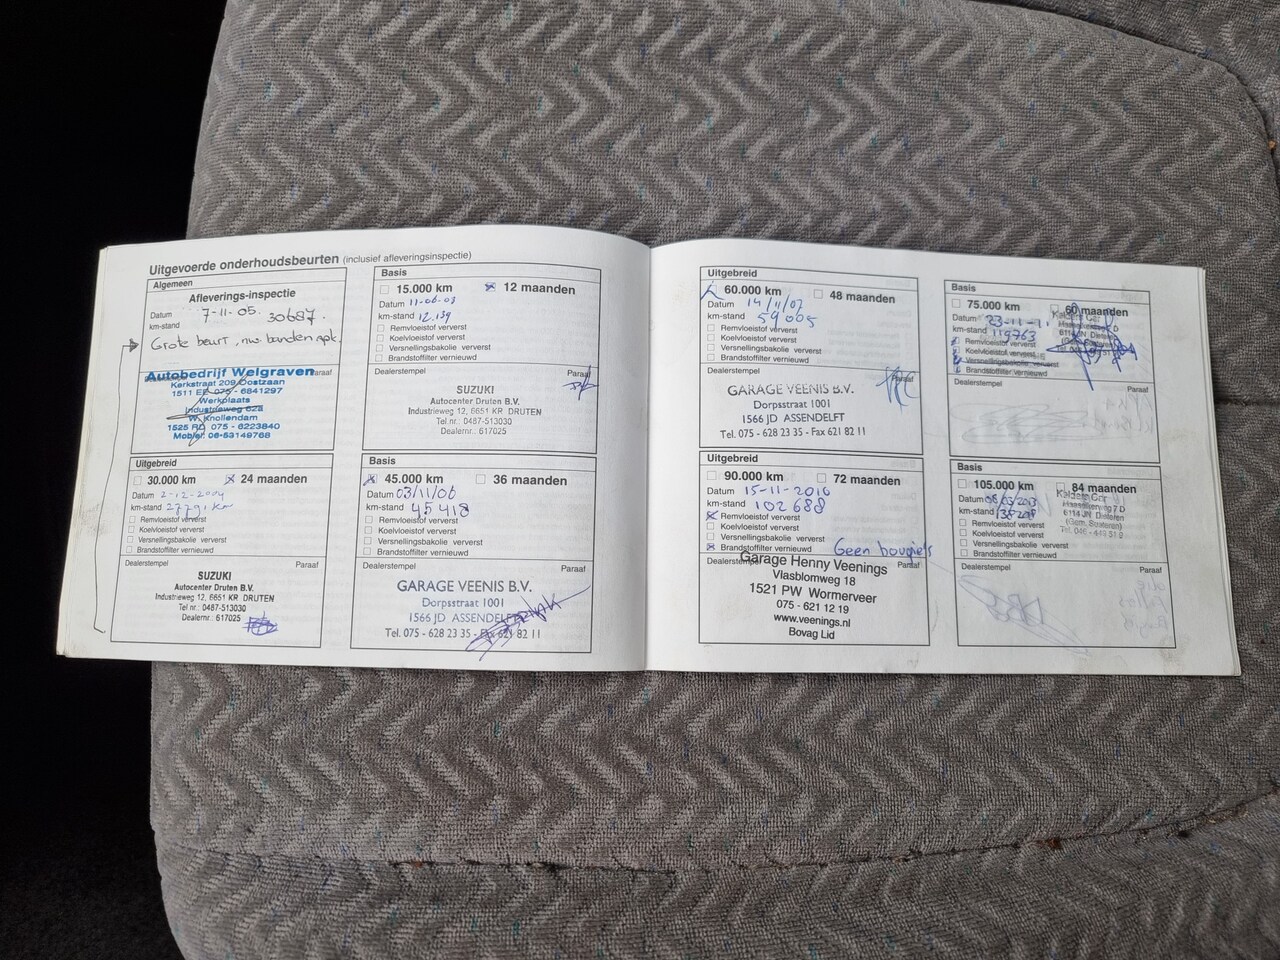 Uitgevoerde onderhoudsbeurten (inclusief afleveringsinspectie)
Algemeen
Afleverings-inspectie
Datum 7-11-05.
km-stand 30687.
Grote beurt, nw. banden
Autobedrijf Welgraven
Kerkstraat 209 Oostzaan
1511 EE 075 - 6841297
Werkplaats
Industrieweg 62a
W. Knollendam
1525 RD 075 - 6223840
Mobiel: 06-53149768
Paraaf
Basis
15.000 km 12 maanden
Datum 11-06-03
km-stand 12.139
Remvloeistof ververst
Koelvloeistof ververst
Versnellingsbakolie ververst
Brandstoffilter vernieuwd
Dealerstempel Paraaf
SUZUKI
Autocenter Druten B.V.
Industrieweg 12, 6651 KR DRUTEN
Tel.nr.: 0487-513030
Dealernr.: 617025
Uitgebreid
30.000 km 24 maanden
Datum 2-12-2004
km-stand
Remvloeistof ververst
Koelvloeistof ververst
Versnellingsbakolie ververst
Brandstoffilter vernieuwd
Dealerstempel Paraaf
SUZUKI
Autocenter Druten B.V.
Industrieweg 12, 6651 KR DRUTEN
Tel nr.: 0487-513030
Dealernr.: 617025
Basis
45.000 km 36 maanden
Datum 03/11/06
km-stand 45418
Remvloeistof ververst
Koelvloeistof ververst
Versnellingsbakolie ververst
Brandstoffilter vernieuwd
Dealerstempel Paraaf
GARAGE VEENIS B.V.
Dorpsstraat 1001
1566 JD ASSENDELFT
Tel. 075 - 628 23 35 - Fax 621 82 11
Uitgebreid
60.000 km 48 maanden
Datum 14/11/07
km-stand 59005
Remvloeistof ververst
Koelvloeistof ververst
Versnellingsbakolie ververst
Brandstoffilter vernieuwd
Dealerstempel Paraaf
GARAGE VEENIS B.V.
Dorpsstraat 1001
1566 JD ASSENDELFT
Tel. 075 - 628 23 35 - Fax 621 82 11
Basis
75.000 km 60 maanden
Datum 23-11-11
km-stand 119763
Remvloeistof ververst
Koelvloeistof ververst
Versnellingsbakolie ververst
Brandstoffilter vernieuwd
Dealerstempel Paraaf
Uitgebreid
90.000 km 72 maanden
Datum 15-11-2010
km-stand 102688
Remvloeistof ververst
Koelvloeistof ververst
Versnellingsbakolie ververst
Brandstoffilter vernieuwd Geen bougiets
Dealerstempel Paraaf
Garage Henny Veenings
Vlasblomweg 18
1521 PW Wormerveer
075 - 621 12 19
www.veenings.nl
Bovag Lid
Basis
105.000 km 84 maanden
Datum 08/03/2013
km-stand
Remvloeistof ververst
Koelvloeistof ververst
Versnellingsbakolie ververst
Brandstoffilter vernieuwd
Dealerstempel Paraaf